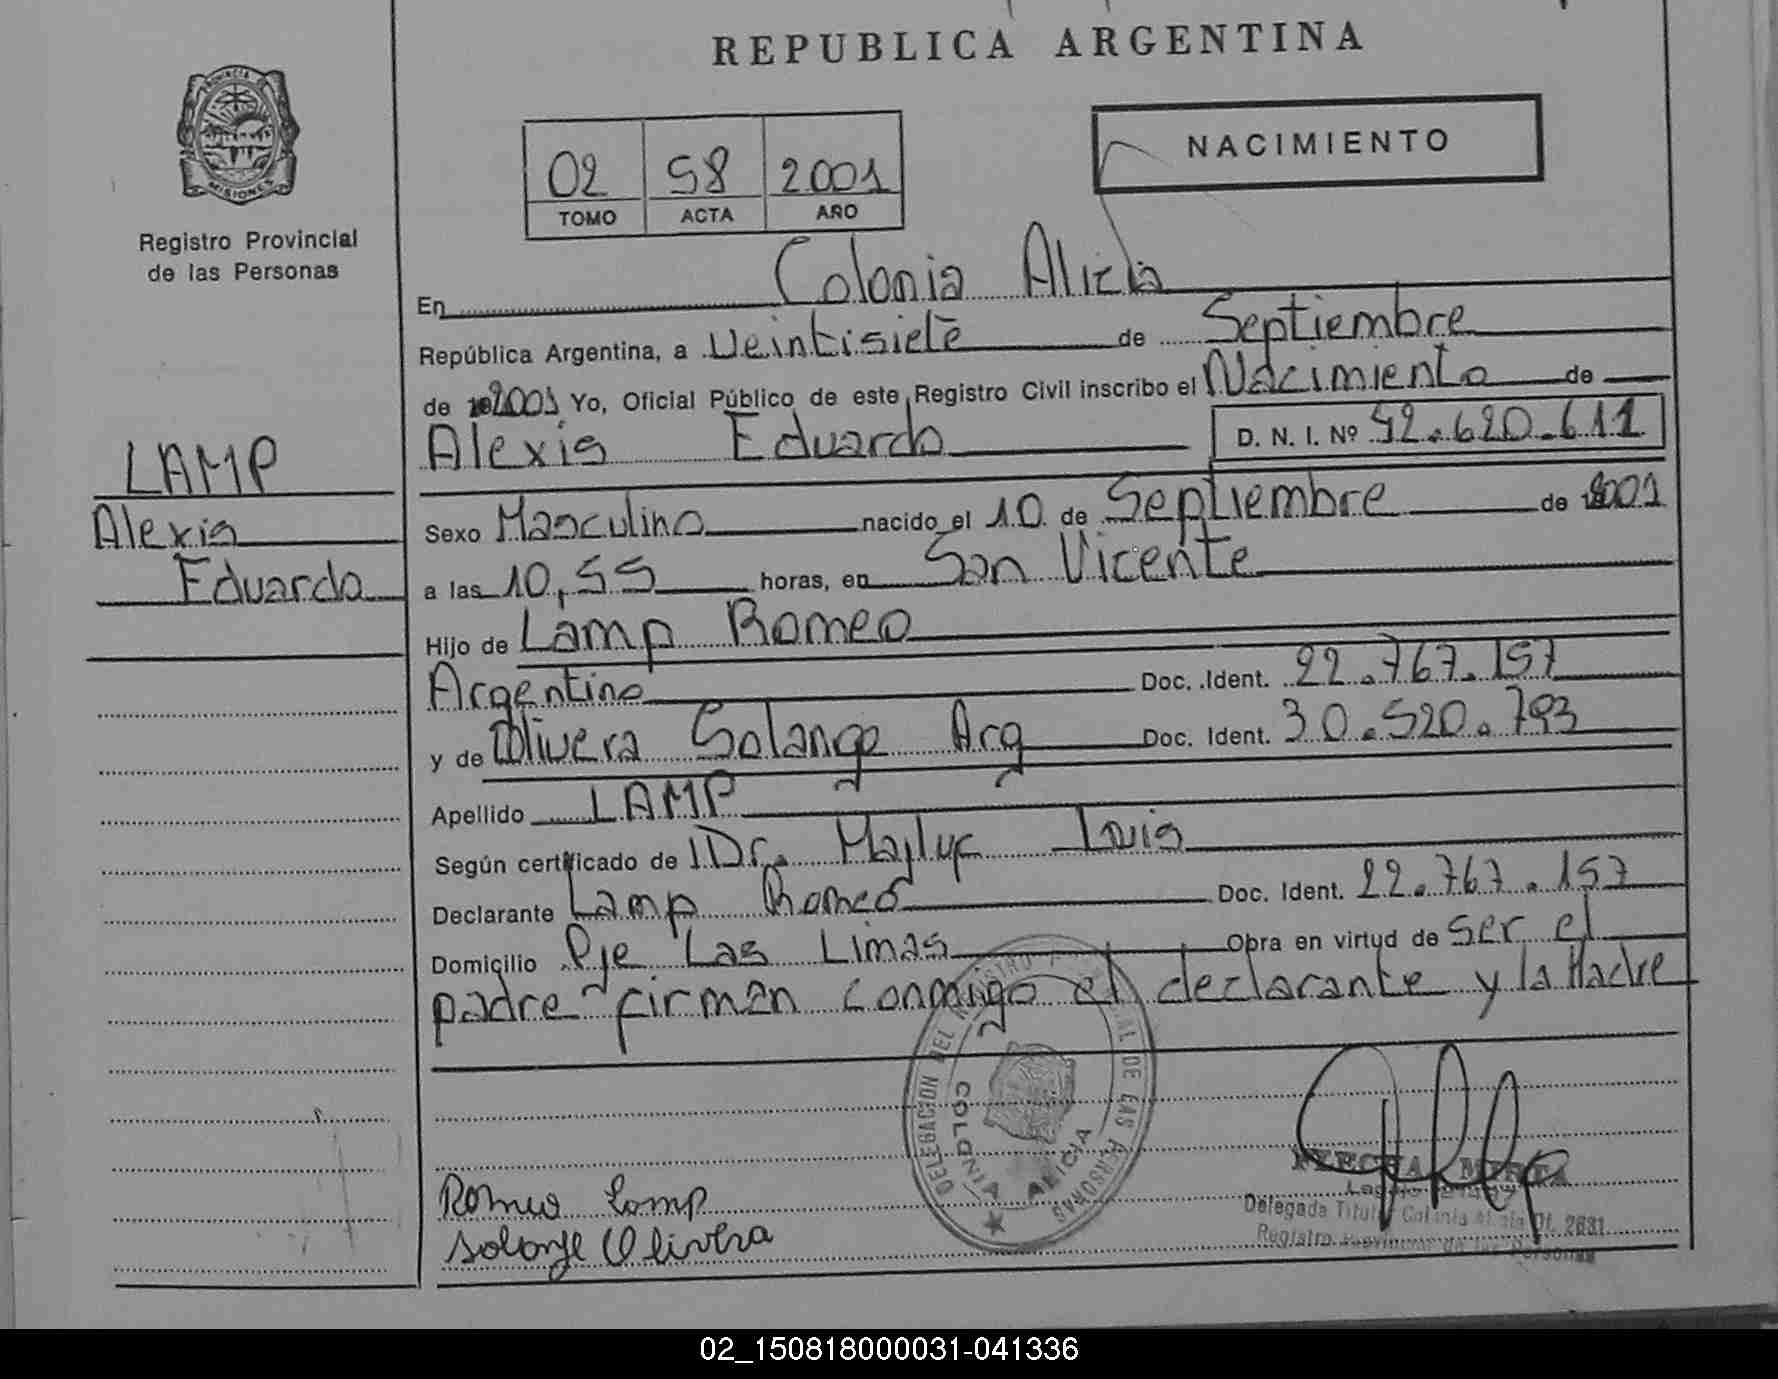 REPUBLICA ARGENTINA
PROVINCIA DE
MISIONES
Registro Provincial
de las Personas
02 58 2001
TOMO ACTA AÑO
NACIMIENTO
En Colonia Alicia
República Argentina, a Veintisiete de Septiembre
de 2001 Yo, Oficial Público de este Registro Civil inscribo el Nacimiento de
Alexis Eduardo D. N. I. Nº 52.620.611
LAMP
Alexis
Eduardo
Sexo Masculino nacido el 10 de Septiembre de 2001
a las 10,55 horas, en San Vicente
Hijo de Lamp Romeo
Argentino Doc. Ident. 22.767.157
y de Olivera Solange Arg Doc. Ident. 30.520.793
Apellido LAMP
Según certificado de Dr. Majluf Luis
Declarante Lamp Romeo Doc. Ident. 22.767.157
Domicilio Pje Las Limas Obra en virtud de ser el
padre firman conmigo el declarante y la Madre
DELEGACION DEL REGISTRO PROVINCIAL DE LAS PERSONAS
COLONIA ALICIA
Romeo Lamp
Solange Olivera
MIRTA
Delegada Titular Colonia Alicia Of. 2631
Registro Provincial de las Personas
02_150818000031-041336